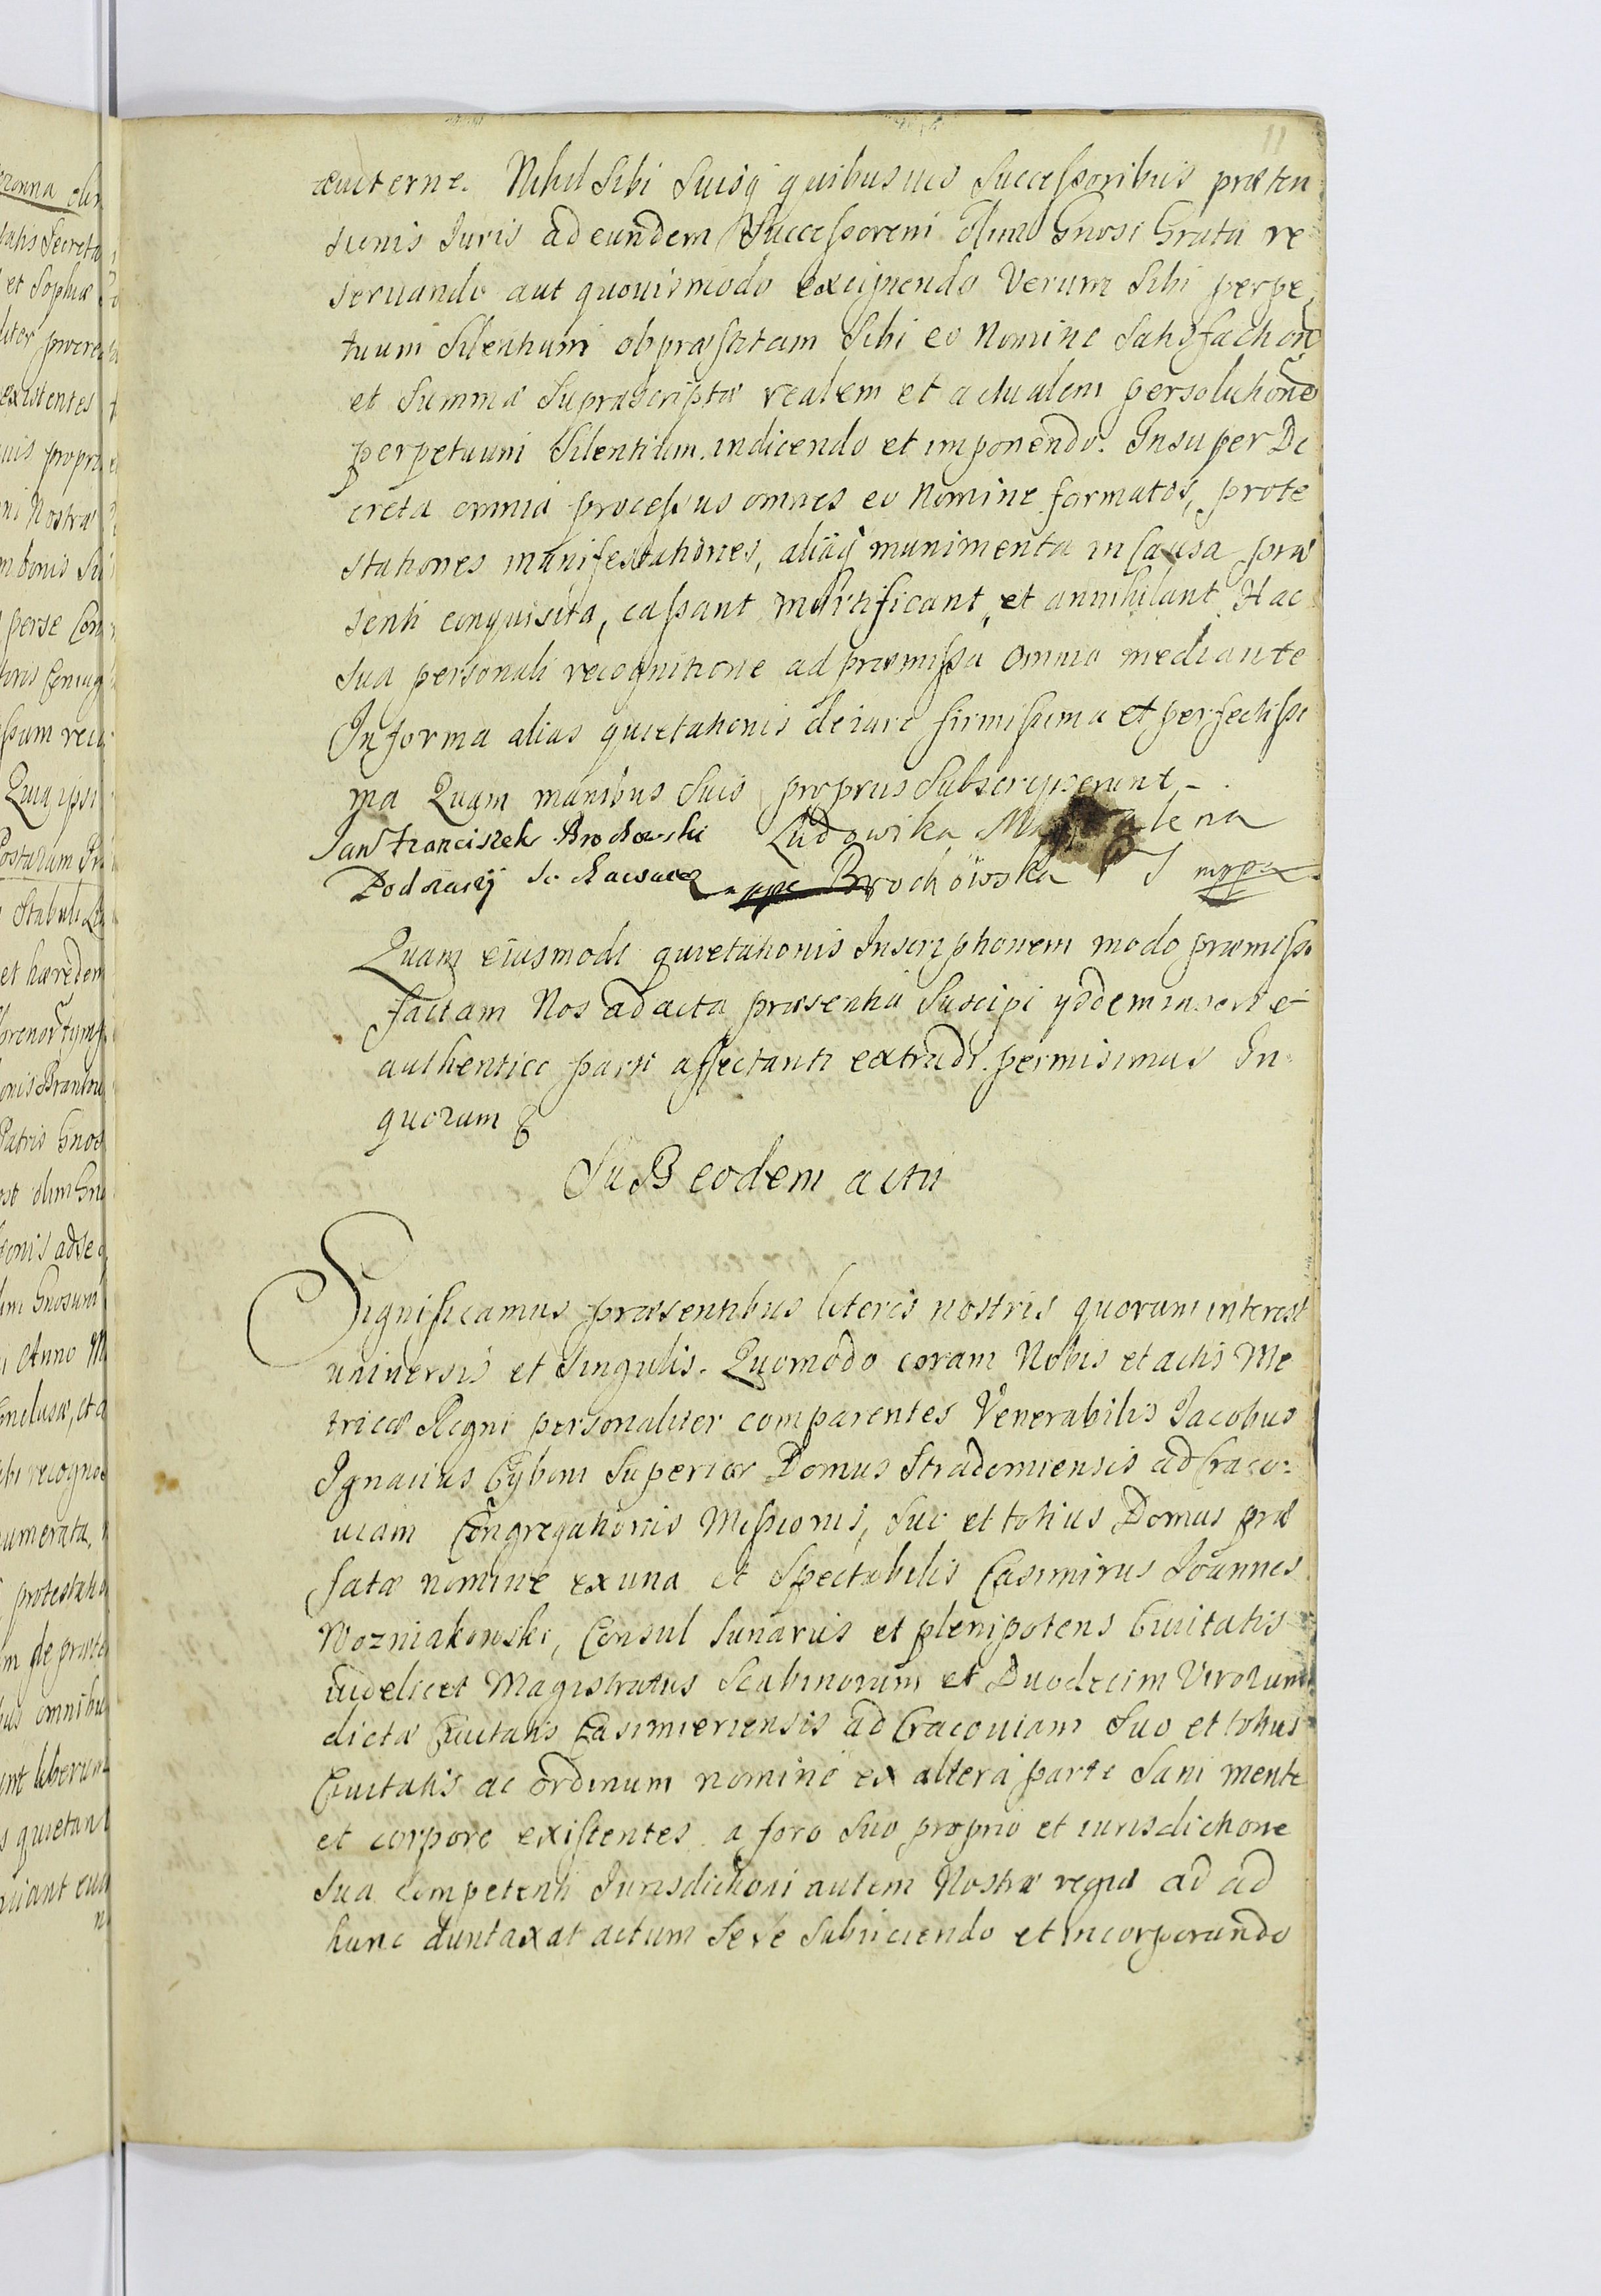 11
æuiterne. Nihil Sibi Suisq quibusuis Successoribus præten
sionis Juris ad eundem Successorem olim Gnosi Gratta re
seruando aut quouismodo excipiendo Verum Sibi perpe
tuum Silentium ob præstitam Sibi eo Nomine Satisfaction
et Summæ Suprascriptæ realem et actualem persolutione
perpetuum Silentium indicendo et imponendo. Insuper De
creta omnia processus omnes eo Nomine formatos, prote
stationes manifestationes, aliaq munimenta in Causa præ
senti conquisita, cassant mortificant, et annihilant Hac
Sua personali recognitione ad præmissa omnia mediante
In forma alias quietationis de iure firmissima et perfectissi
ma Quam manibus Suis proprius Subscripserunt –
Jan Franciszek Brochowski Ludowika lena
Podczaszy Brochowska mppa
Quam eiusmodi quietationis Inscriptionem modo præmisso
factam Nos ad acta præsentia Suscipi ysdem inseri et
authentice parti affectanti extradi permisimus In
quorum
SuB eodem actu
Significamus præsentibus literis nostris quorum interest
uniuersis et Singulis. Quomodo coram Nobis et actis Me
tricæ Regni personaliter comparentes Venerabilis Jacobus
Ignatius Cyboni Superior Domus Stradomiensis ad Craco:
uiam Congregationis Missionis, Suo et totius Domus præ
fatæ nomine ex una et Spectabilis Casimirus Joannes
Wozniakowski, Consul Iuratus et plenipotens Ciuitatis
uidelicet Magistratus Scabinorum et Duodecim Virorum
dictæ Ciuitatis Casimieriensis ad Cracouiam Suo et totius
Ciuitatis ac ordinum nomine ex altera parte Sani mente
et corpore existentes a foro Suo proprio et iurisdictione
Sua competenti Jurisdictioni autem Nostræ regiæ ad ad
hunc duntaxat actum Sese Subiiciendo et incorporando